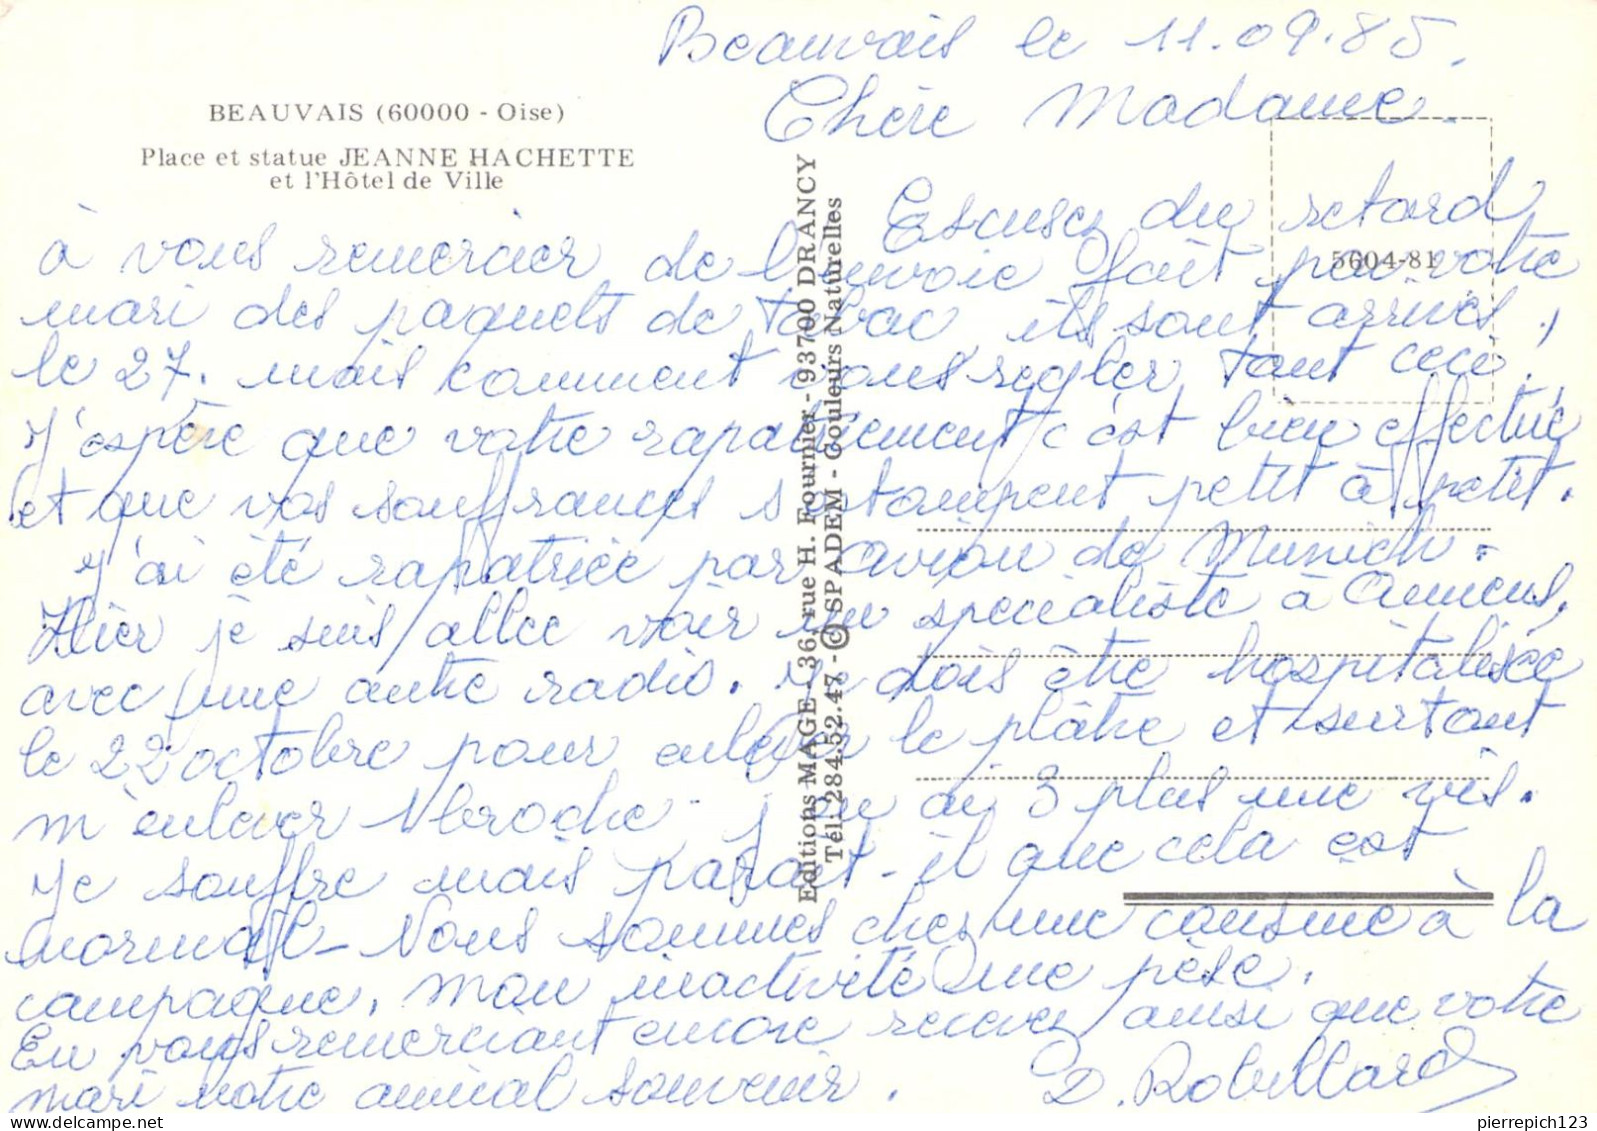 Beauvais le 11.09.85.
BEAUVAIS (60000 - Oise)
Place et statue JEANNE HACHETTE
et l'Hôtel de Ville
Chère Madame.
Escusez du retard
à vous remercier de l'envoie fait par votre
mari des paquets de tabac ils sont arrivés,
le 27. mais comment vous regler tant ceci.
J'espère que votre rapatriement c'est bien effectué
et que vos souffrances s'atompent petit à petit.
J'ai été rapatriée par avion de Munich.
Hier je suis allée voir un specialiste à Amiens,
avec une autre radio. Je dois être hospitalisée
le 22 octobre pour enlever le plâtre et surtout
m'enlever 1 broche. j'en ai 3 plus une vis.
Je souffre mais parait-il que cela est
normal - Nous sommes chez une cousine à la
campagne. mon inactivité me pèse.
En vous remerciant encore recevez ainsi que votre
mari notre amical souvenir.
D. Robillard
5604-81
Editions MAGE - 36, rue H. Fournier - 93700 DRANCY
Tél. 284.52.47 - © SPADEM - Couleurs Naturelles
pierrepich123